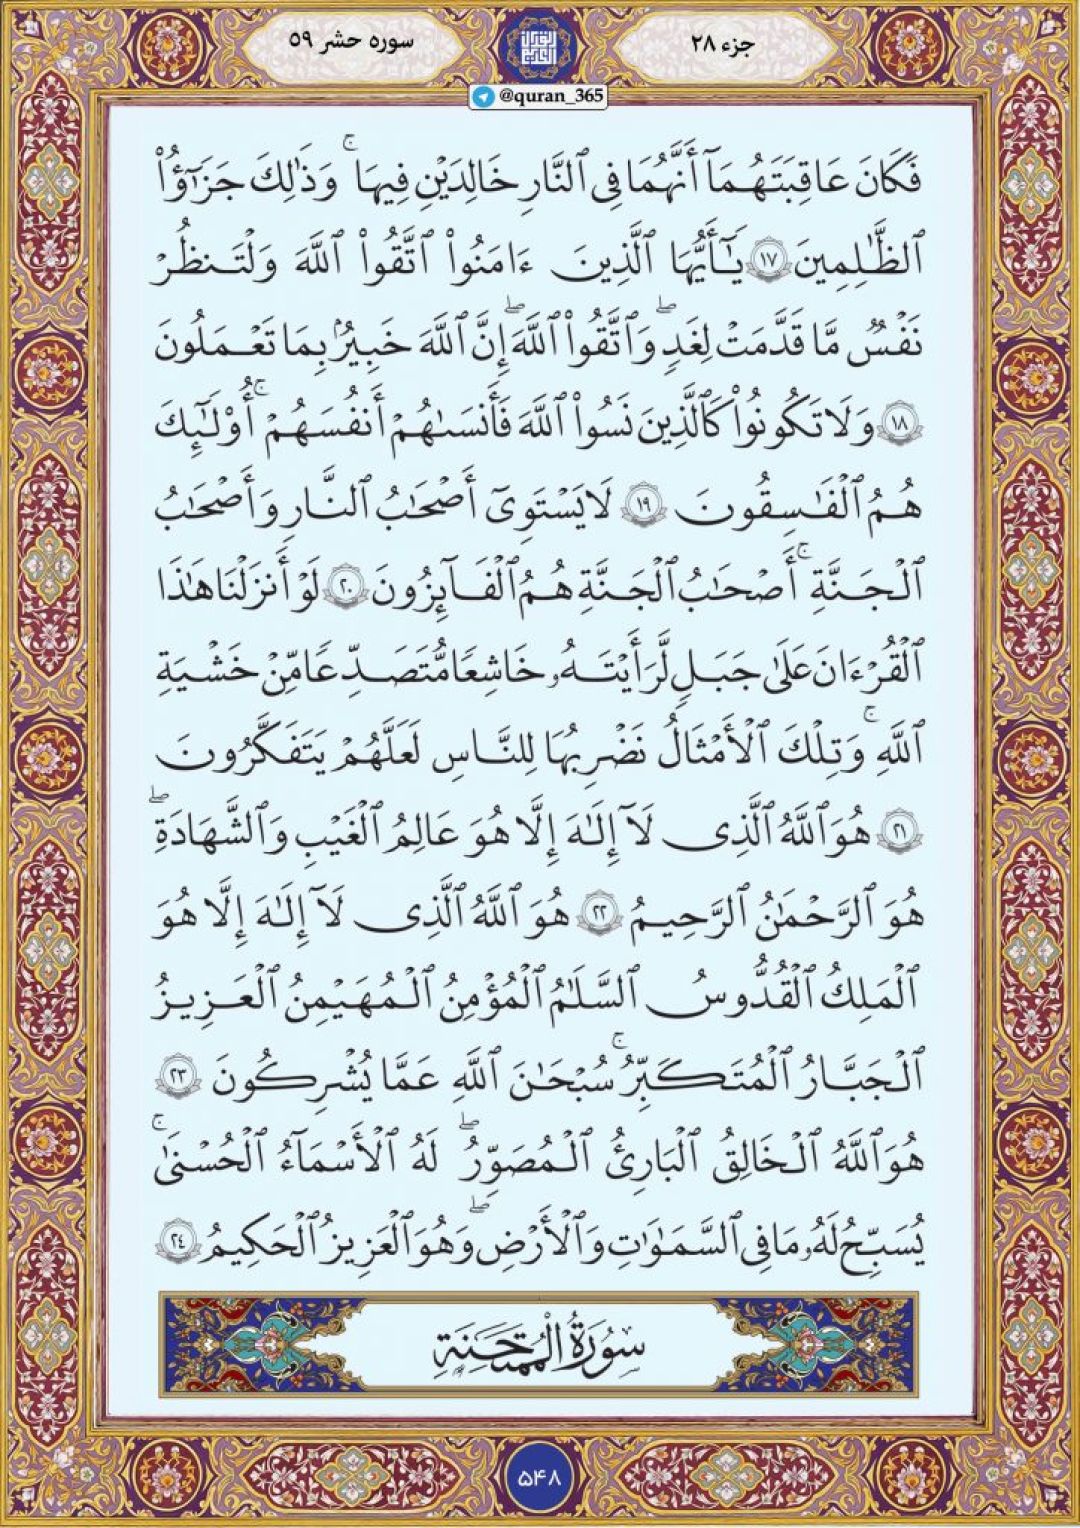 جزء ۲۸
سوره حشر ۵۹
@quran_365
فَكَانَ عَاقِبَتَهُمَآ أَنَّهُمَا فِى ٱلنَّارِ خَالِدَيْنِ فِيهَا ۚ وَذَٰلِكَ جَزَٰٓؤُا۟
ٱلظَّٰلِمِينَ ١٧ يَٰٓأَيُّهَا ٱلَّذِينَ ءَامَنُوا۟ ٱتَّقُوا۟ ٱللَّهَ وَلْتَنظُرْ
نَفْسٌ مَّا قَدَّمَتْ لِغَدٍ ۖ وَٱتَّقُوا۟ ٱللَّهَ ۖ إِنَّ ٱللَّهَ خَبِيرٌۢ بِمَا تَعْمَلُونَ
١٨ وَلَا تَكُونُوا۟ كَٱلَّذِينَ نَسُوا۟ ٱللَّهَ فَأَنسَىٰهُمْ أَنفُسَهُمْ ۚ أُو۟لَٰٓئِكَ
هُمُ ٱلْفَٰسِقُونَ ١٩ لَا يَسْتَوِىٓ أَصْحَٰبُ ٱلنَّارِ وَأَصْحَٰبُ
ٱلْجَنَّةِ ۚ أَصْحَٰبُ ٱلْجَنَّةِ هُمُ ٱلْفَآئِزُونَ ٢٠ لَوْ أَنزَلْنَا هَٰذَا
ٱلْقُرْءَانَ عَلَىٰ جَبَلٍ لَّرَأَيْتَهُۥ خَاشِعًا مُّتَصَدِّعًا مِّنْ خَشْيَةِ
ٱللَّهِ ۚ وَتِلْكَ ٱلْأَمْثَالُ نَضْرِبُهَا لِلنَّاسِ لَعَلَّهُمْ يَتَفَكَّرُونَ
٢١ هُوَ ٱللَّهُ ٱلَّذِى لَآ إِلَٰهَ إِلَّا هُوَ عَالِمُ ٱلْغَيْبِ وَٱلشَّهَادَةِ ۖ
هُوَ ٱلرَّحْمَٰنُ ٱلرَّحِيمُ ٢٢ هُوَ ٱللَّهُ ٱلَّذِى لَآ إِلَٰهَ إِلَّا هُوَ
ٱلْمَلِكُ ٱلْقُدُّوسُ ٱلسَّلَٰمُ ٱلْمُؤْمِنُ ٱلْمُهَيْمِنُ ٱلْعَزِيزُ
ٱلْجَبَّارُ ٱلْمُتَكَبِّرُ ۚ سُبْحَٰنَ ٱللَّهِ عَمَّا يُشْرِكُونَ ٢٣
هُوَ ٱللَّهُ ٱلْخَالِقُ ٱلْبَارِئُ ٱلْمُصَوِّرُ ۖ لَهُ ٱلْأَسْمَآءُ ٱلْحُسْنَىٰ ۚ
يُسَبِّحُ لَهُۥ مَا فِى ٱلسَّمَٰوَٰتِ وَٱلْأَرْضِ ۖ وَهُوَ ٱلْعَزِيزُ ٱلْحَكِيمُ ٢٤
سُورَةُ الْمُمْتَحَنَةِ
۵۴۸